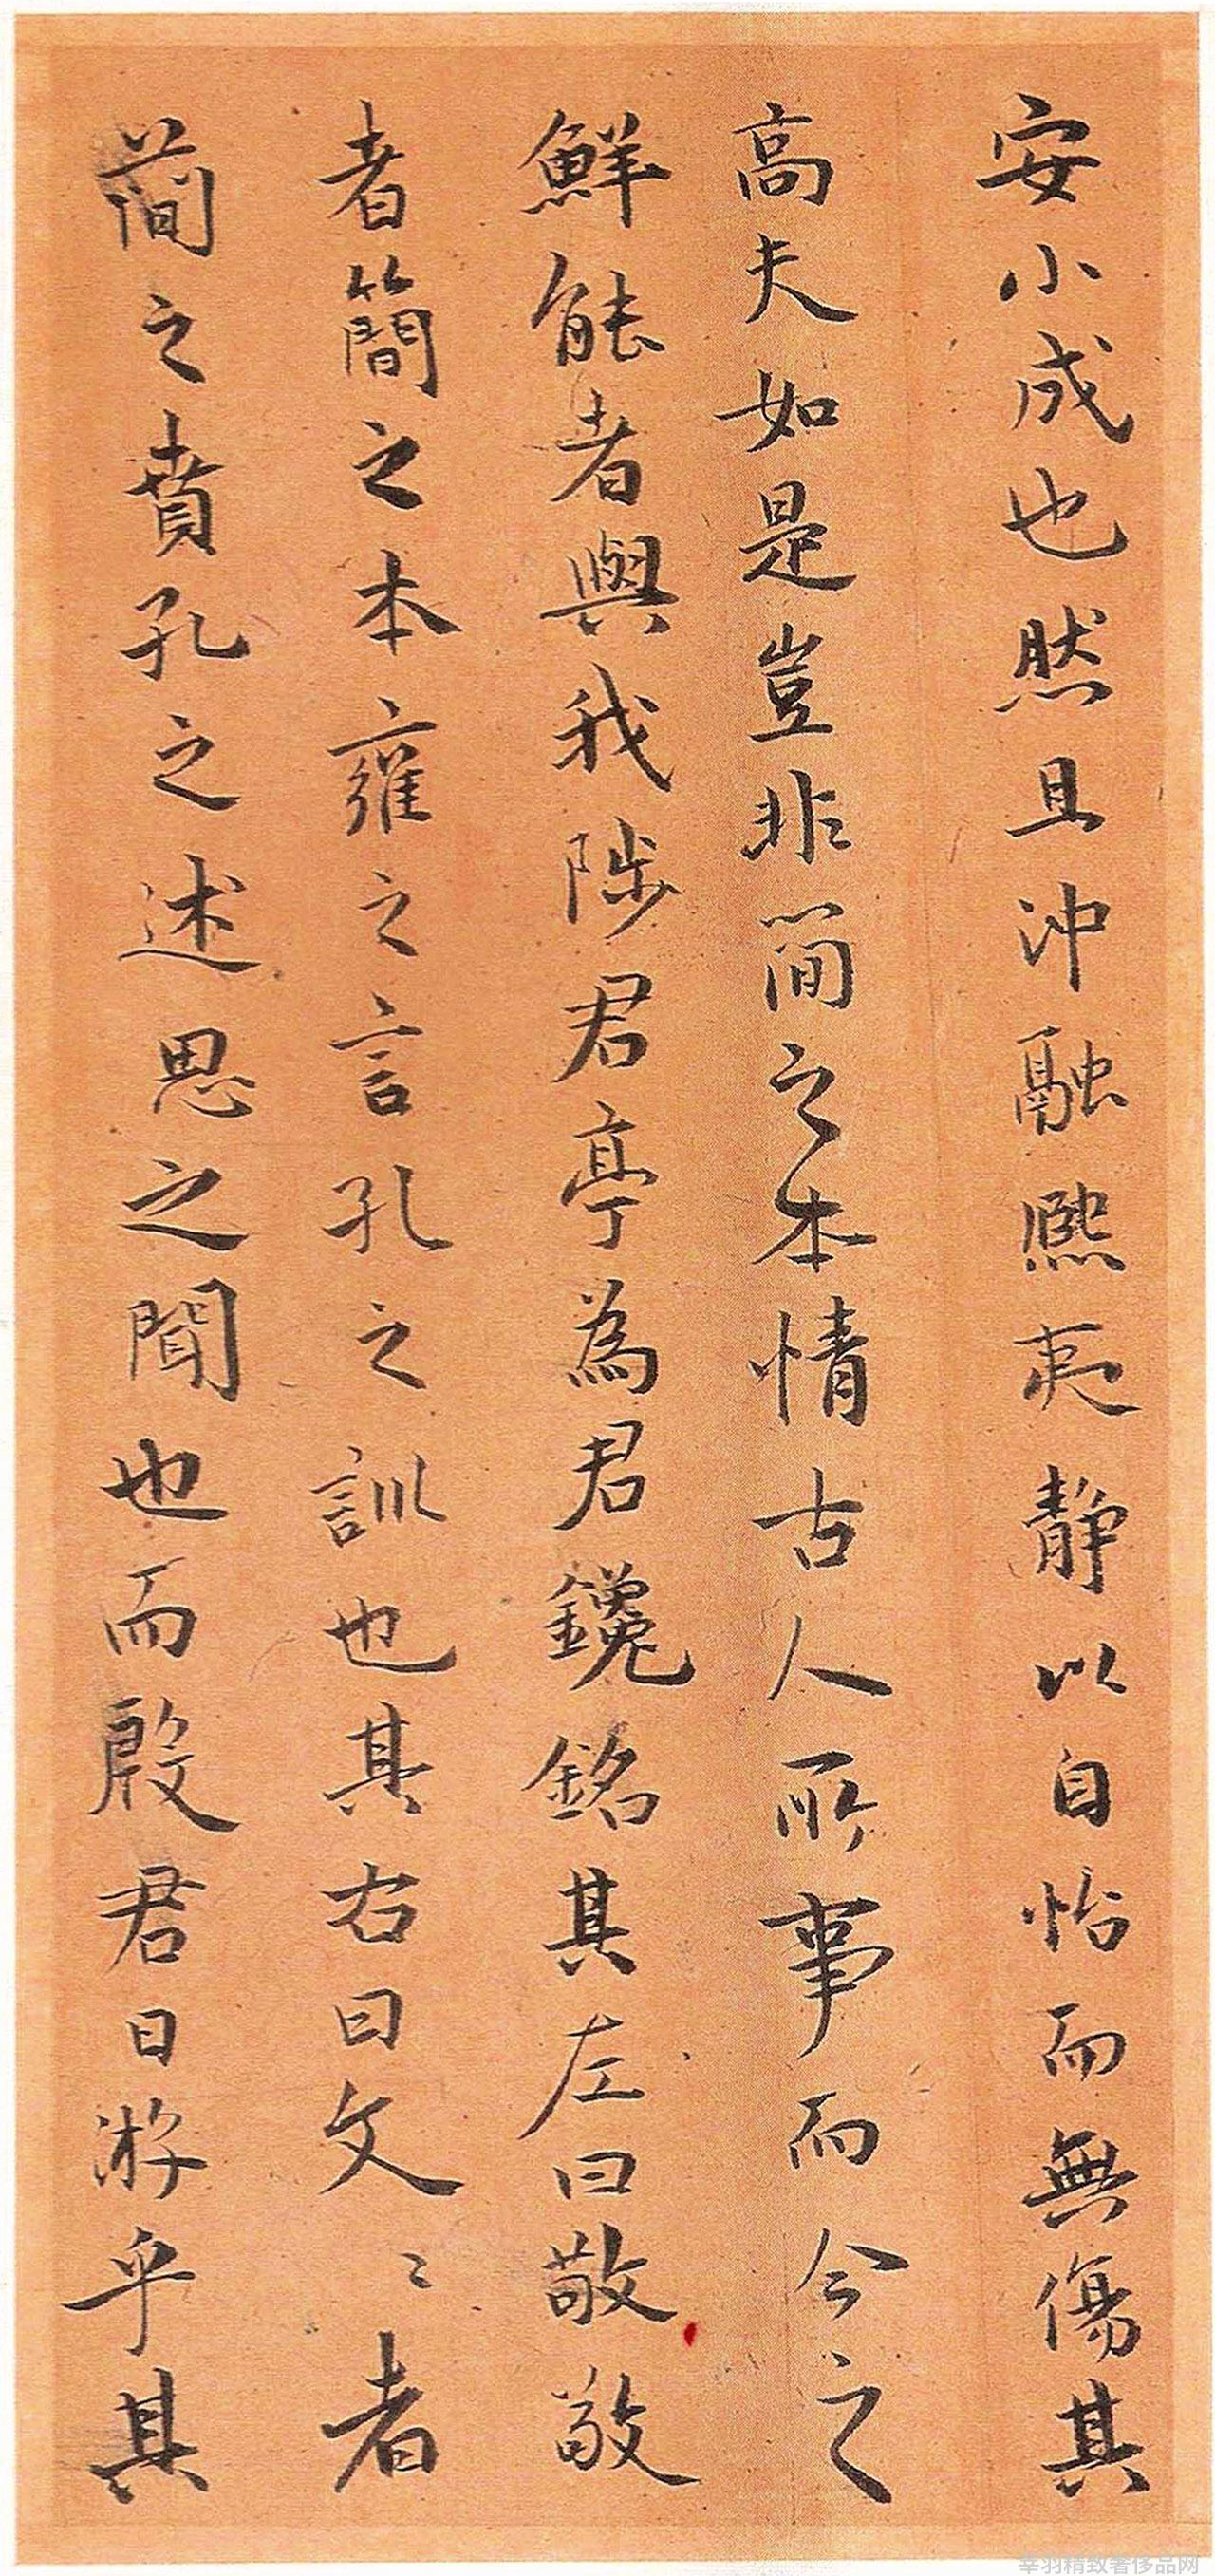 安小成也然且沖融熙夷静以自怡而無傷其
高夫如是豈非簡之本情古人所事而今之
鮮能者與我陟君亭為君鑱銘其左曰敬敬
者簡之本雍之言孔之訓也其右曰文〻者
簡之賁孔之述思之聞也而殷君日游乎其
辛羽精致奢侈品网